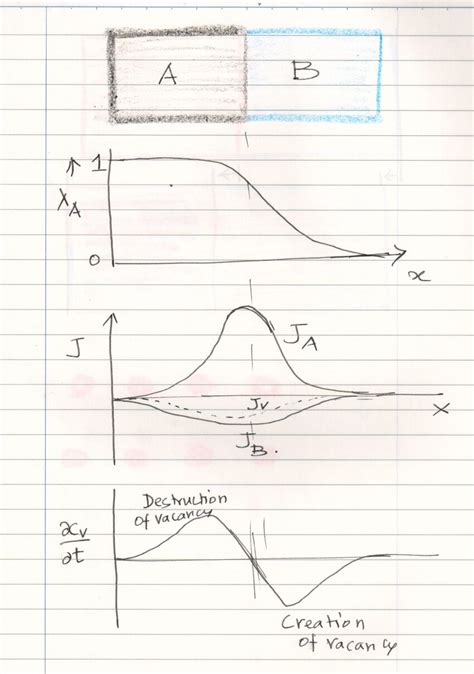 A B
↑ 1
X_A
0
x
J J_A
J_V
x
J_B.
Destruction
of vacancy
∂c_v
∂t
Creation
of vacancy